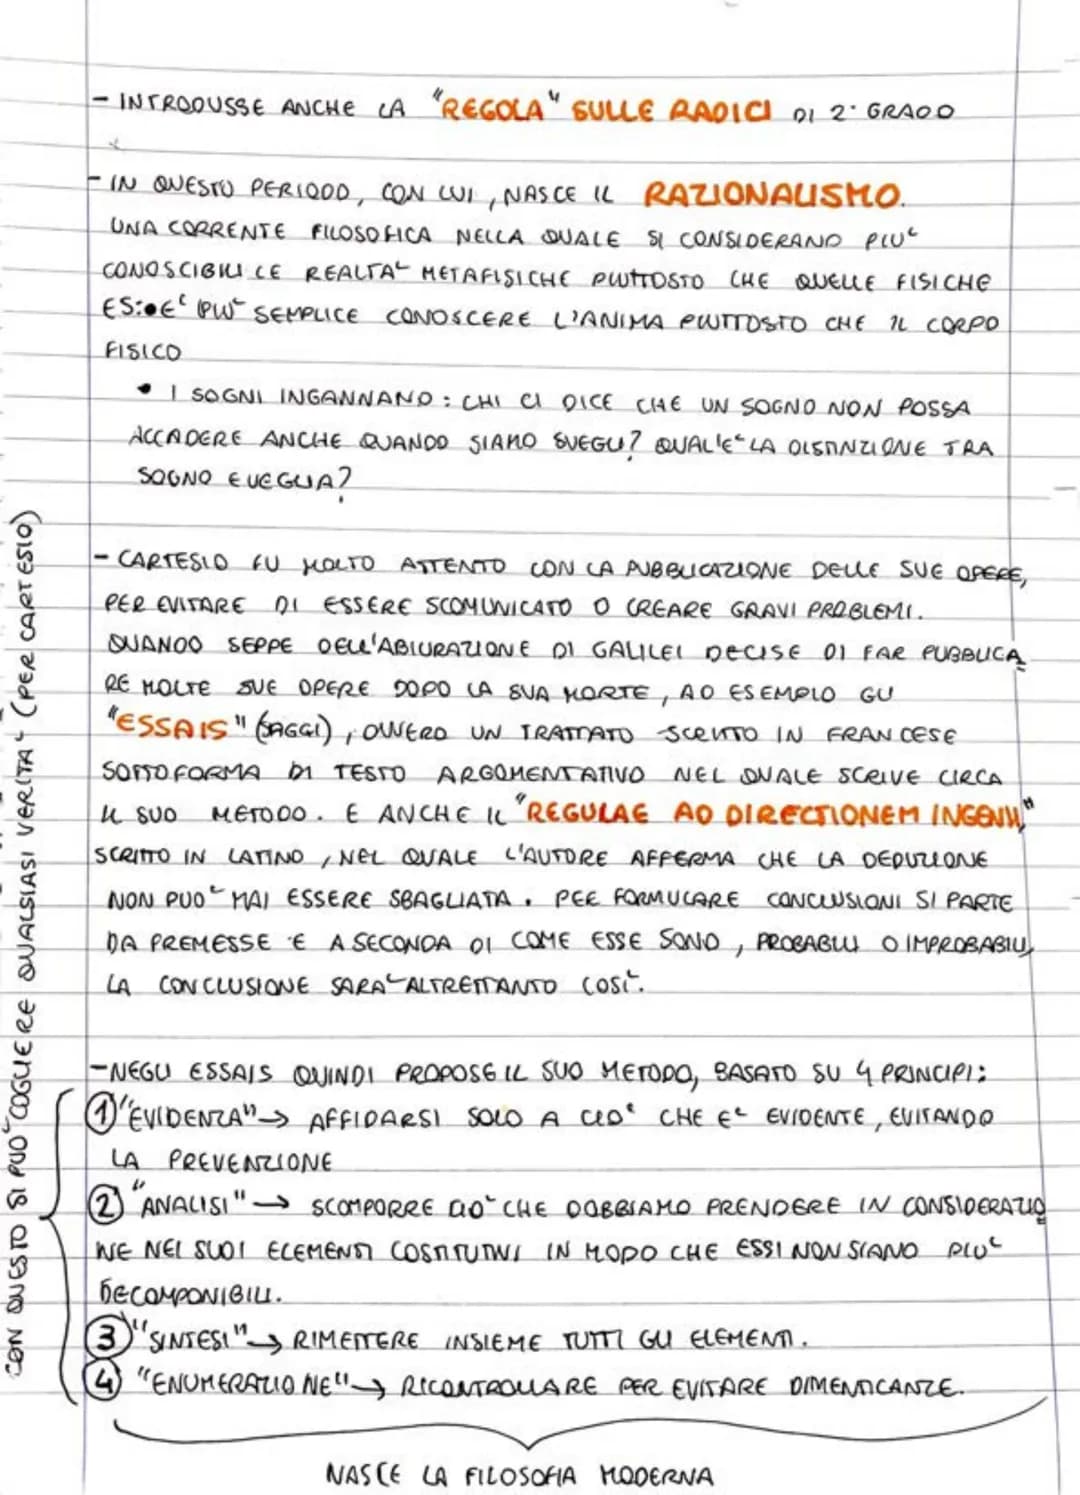 - INTRODUSSE ANCHE LA "REGOLA" SULLE RADICI DI 2° GRADO
- IN QUESTO PERIODO, CON LUI, NASCE IL RAZIONALISMO.
UNA CORRENTE FILOSOFICA NELLA QUALE SI CONSIDERANO PIU'
CONOSCIBILI LE REALTA' METAFISICHE PIUTTOSTO CHE QUELLE FISICHE
ES: E' PIU' SEMPLICE CONOSCERE L'ANIMA PIUTTOSTO CHE IL CORPO
FISICO
• I SOGNI INGANNANO: CHI CI DICE CHE UN SOGNO NON POSSA
ACCADERE ANCHE QUANDO SIAMO SVEGLI? QUAL'E' LA DISTINZIONE TRA
SOGNO E VEGLIA?
- CARTESIO FU MOLTO ATTENTO CON LA PUBBLICAZIONE DELLE SUE OPERE,
PER EVITARE DI ESSERE SCOMUNICATO O CREARE GRAVI PROBLEMI.
QUANDO SEPPE DELL'ABIURAZIONE DI GALILEI DECISE DI FAR PUBBLICA
RE MOLTE SUE OPERE DOPO LA SUA MORTE, AD ESEMPIO GLI
"ESSAIS" (SAGGI), OVVERO UN TRATTATO SCRITTO IN FRANCESE
SOTTOFORMA DI TESTO ARGOMENTATIVO NEL QUALE SCRIVE CIRCA
IL SUO METODO. E ANCHE IL "REGULAE AD DIRECTIONEM INGENII"
SCRITTO IN LATINO, NEL QUALE L'AUTORE AFFERMA CHE LA DEDUZIONE
NON PUO' MAI ESSERE SBAGLIATA. PER FORMULARE CONCLUSIONI SI PARTE
DA PREMESSE E A SECONDA DI COME ESSE SONO, PROBABILI O IMPROBABILI,
LA CONCLUSIONE SARA' ALTRETTANTO COSI'.
- NEGLI ESSAIS QUINDI PROPOSE IL SUO METODO, BASATO SU 4 PRINCIPI:
① "EVIDENZA" → AFFIDARSI SOLO A CIO' CHE E' EVIDENTE, EVITANDO
LA PREVENZIONE
② "ANALISI" → SCOMPORRE CIO' CHE DOBBIAMO PRENDERE IN CONSIDERAZIO
NE NEI SUOI ELEMENTI COSTITUTIVI IN MODO CHE ESSI NON SIANO PIU'
DECOMPONIBILI.
③ "SINTESI" → RIMETTERE INSIEME TUTTI GLI ELEMENTI.
④ "ENUMERAZIONE" → RICONTROLLARE PER EVITARE DIMENTICANZE.
NASCE LA FILOSOFIA MODERNA
CON QUESTO SI PUO' COGLIERE QUALSIASI VERITA' (PER CARTESIO)